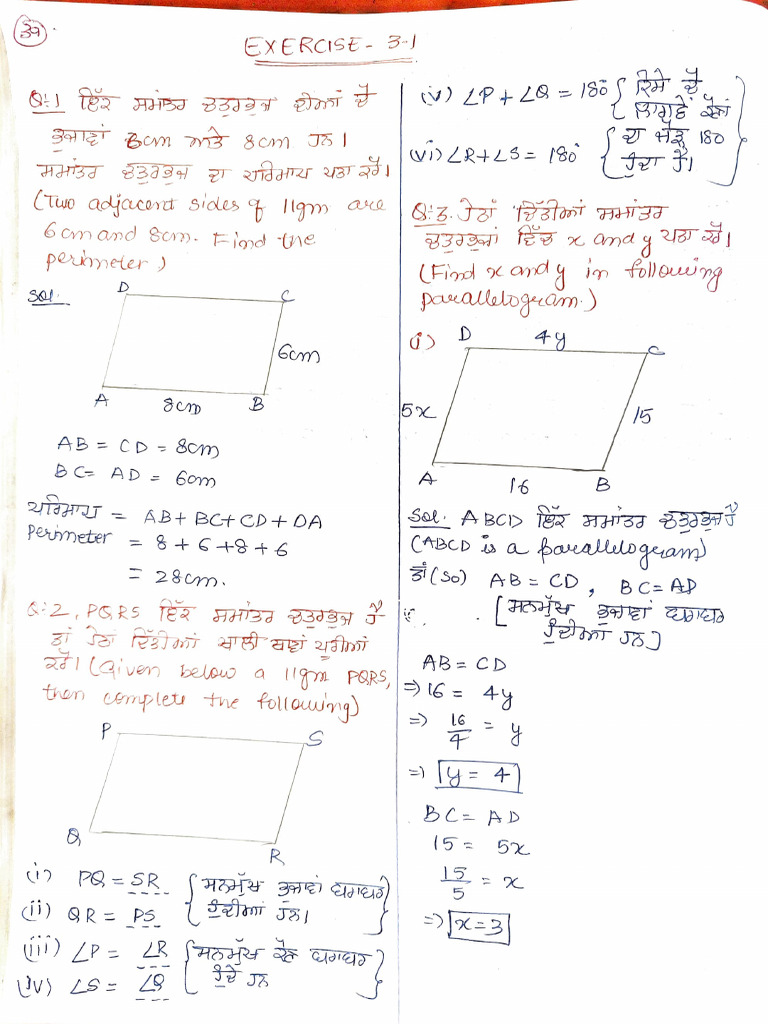 39
EXERCISE - 3.1
Q:1 ਇੱਕ ਸਮਾਂਤਰ ਚਤੁਰਭੁਜ ਦੀਆਂ ਦੋ
ਭੁਜਾਵਾਂ 6cm ਅਤੇ 8cm ਹਨ।
ਸਮਾਂਤਰ ਚਤੁਰਭੁਜ ਦਾ ਪਰਿਮਾਪ ਪਤਾ ਕਰੋ।
(Two adjacent sides of 11gm are
6cm and 8cm. Find the
perimeter)
Sol.
D C
6cm
A 8cm B
AB = CD = 8cm
BC = AD = 6cm
ਪਰਿਮਾਪ = AB + BC + CD + DA
Perimeter = 8 + 6 + 8 + 6
= 28cm.
Q:2, PQRS ਇੱਕ ਸਮਾਂਤਰ ਚਤੁਰਭੁਜ ਹੈ
ਤਾਂ ਹੇਠਾਂ ਦਿੱਤੀਆਂ ਖਾਲੀ ਥਾਵਾਂ ਪੂਰੀਆਂ
ਕਰੋ। (Given below a 11gm PQRS,
then complete the following)
P S
Q R
(i) PQ = SR { ਸਨਮੁੱਖ ਭੁਜਾਵਾਂ ਬਰਾਬਰ
(ii) QR = PS ਹੁੰਦੀਆਂ ਹਨ। }
(iii) ∠P = ∠R { ਸਨਮੁੱਖ ਕੋਣ ਬਰਾਬਰ
(iv) ∠S = ∠Q ਹੁੰਦੇ ਹਨ }
(v) ∠P + ∠Q = 180° { ਕਿਸੇ ਦੋ
ਲਾਗਵੇਂ ਕੋਣਾਂ
(vi) ∠R + ∠S = 180° ਦਾ ਜੋੜ 180
ਹੁੰਦਾ ਹੈ। }
Q:3. ਹੇਠਾਂ ਦਿੱਤੀਆਂ ਸਮਾਂਤਰ
ਚਤੁਰਭੁਜਾਂ ਵਿੱਚ x and y ਪਤਾ ਕਰੋ।
(Find x and y in following
parallelogram.)
(i) D 4y C
5x 15
A 16 B
Sol. ABCD ਇੱਕ ਸਮਾਂਤਰ ਚਤੁਰਭੁਜ ਹੈ
(ABCD is a parallelogram)
ਤਾਂ (So) AB = CD, BC = AD
[ਸਨਮੁੱਖ ਭੁਜਾਵਾਂ ਬਰਾਬਰ
ਹੁੰਦੀਆਂ ਹਨ]
AB = CD
⇒ 16 = 4y
⇒ 16/4 = y
⇒ y = 4
BC = AD
15 = 5x
15/5 = x
⇒ x = 3